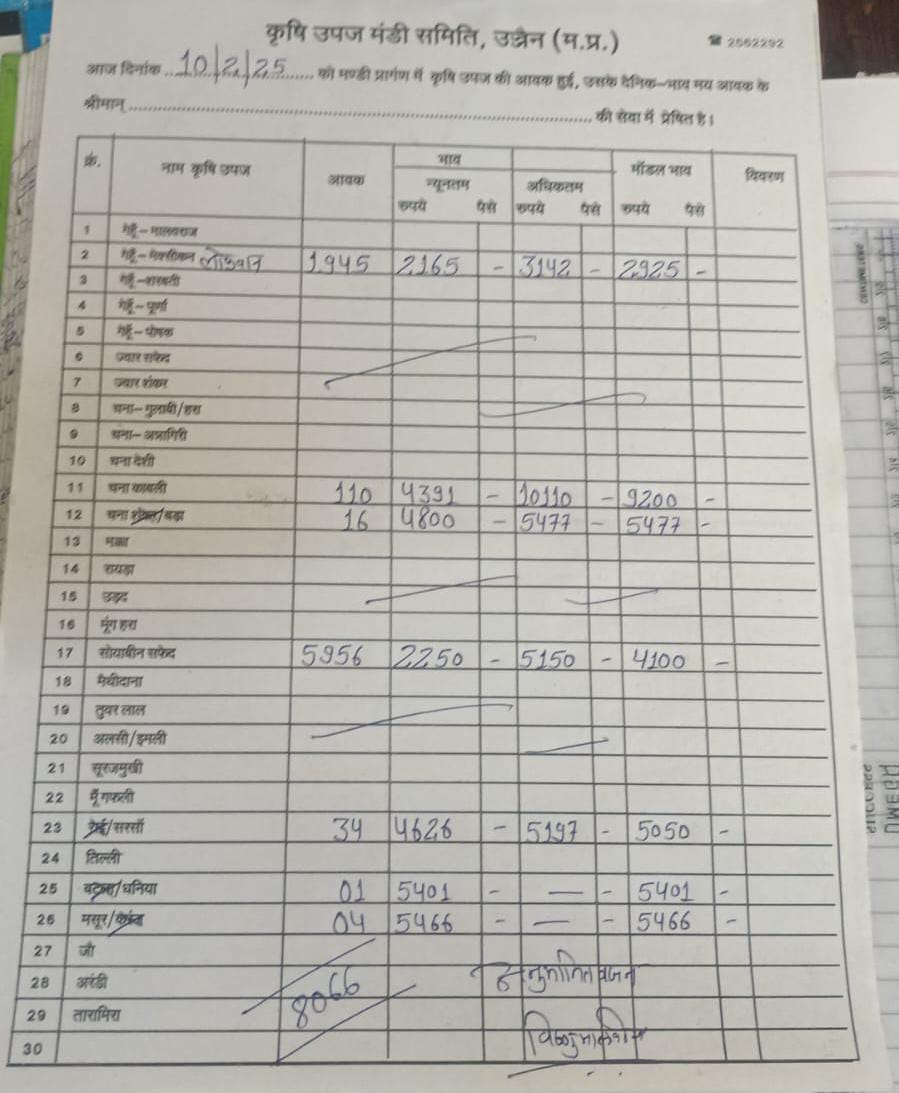 कृषि उपज मंडी समिति, उज्जैन (म.प्र.) ☎ 2562292
आज दिनांक 10/2/25 को मण्डी प्रागंण में कृषि उपज की आवक हुई, उसके दैनिक-भाव मय आवक के
श्रीमान् की सेवा में प्रेषित है।
क्रं. नाम कृषि उपज आवक भाव मॉडल भाव विवरण
न्यूनतम अधिकतम
रुपये पैसे रुपये पैसे रुपये पैसे
1 गेहूँ-मालवराज
2 गेहूँ-मेक्सीकन लोकवान 1945 2165 - 3142 - 2925 -
3 गेहूँ-शरबती
4 गेहूँ-पूर्णा
5 गेहूँ-पोषक
6 ज्वार सफेद
7 ज्वार शंकर
8 चना-गुलाबी/हरा
9 चना-अन्नागिरी
10 चना देशी
11 चना काबली 110 4391 - 10110 - 9200 -
12 चना शंकर/बड़ा 16 4800 - 5477 - 5477 -
13 मक्का
14 रायड़ा
15 उड़द
16 मूंग हरा
17 सोयाबीन सफेद 5956 2250 - 5150 - 4100 -
18 मैथीदाना
19 तुवर लाल
20 अलसी/इमली
21 सूरजमुखी
22 मूँगफली
23 राई/सरसों 34 4626 - 5197 - 5050 -
24 तिल्ली
25 बटला/धनिया 01 5401 - — - 5401 -
26 मसूर 04 5466 - — - 5466 -
27 जौ
28 अरंडी
29 तारामिरा
30
8066
अनुमानित वजन